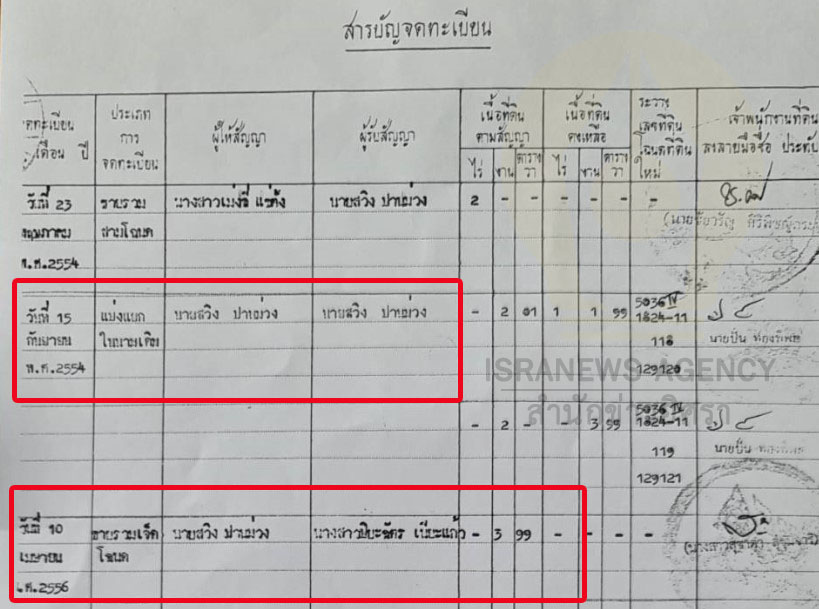 สารบัญจดทะเบียน
จดทะเบียน
เดือน ปี
ประเภท
การ
จดทะเบียน
ผู้ให้สัญญา
ผู้รับสัญญา
เนื้อที่ดิน
ตามสัญญา
ไร่ งาน ตาราง
วา
เนื้อที่ดิน
คงเหลือ
ไร่ งาน ตาราง
วา
ระวาง
เลขที่ดิน
โฉนดที่ดิน
ใหม่
เจ้าพนักงานที่ดิน
ลงลายมือชื่อ ประทับ
วันที่ 23 ขายรวม นายสวิง ปาเม่วง 2 - - - - - -
พฤษภาคม สามโฉนด
พ.ศ.2554
วันที่ 15 แบ่งแยก นายสวิง ปาเม่วง นายสวิง ปาเม่วง - 2 01 1 1 99 5036 IV
1824-11
กันยายน ในนามเดิม 118 นายปั่น
พ.ศ.2554 129120
ISRANEWS AGENCY
สำนักข่าวอิศรา
- 2 - - 3 99 5036 IV
1824-11
119 นายปั่น
129121
วันที่ 10 ขายรวมเจ็ด นายสวิง ปาเม่วง นางสาวปิยะฉัตร เนียะแก้ว - 3 99 - - - -
เมษายน โฉนด
.ศ.2556